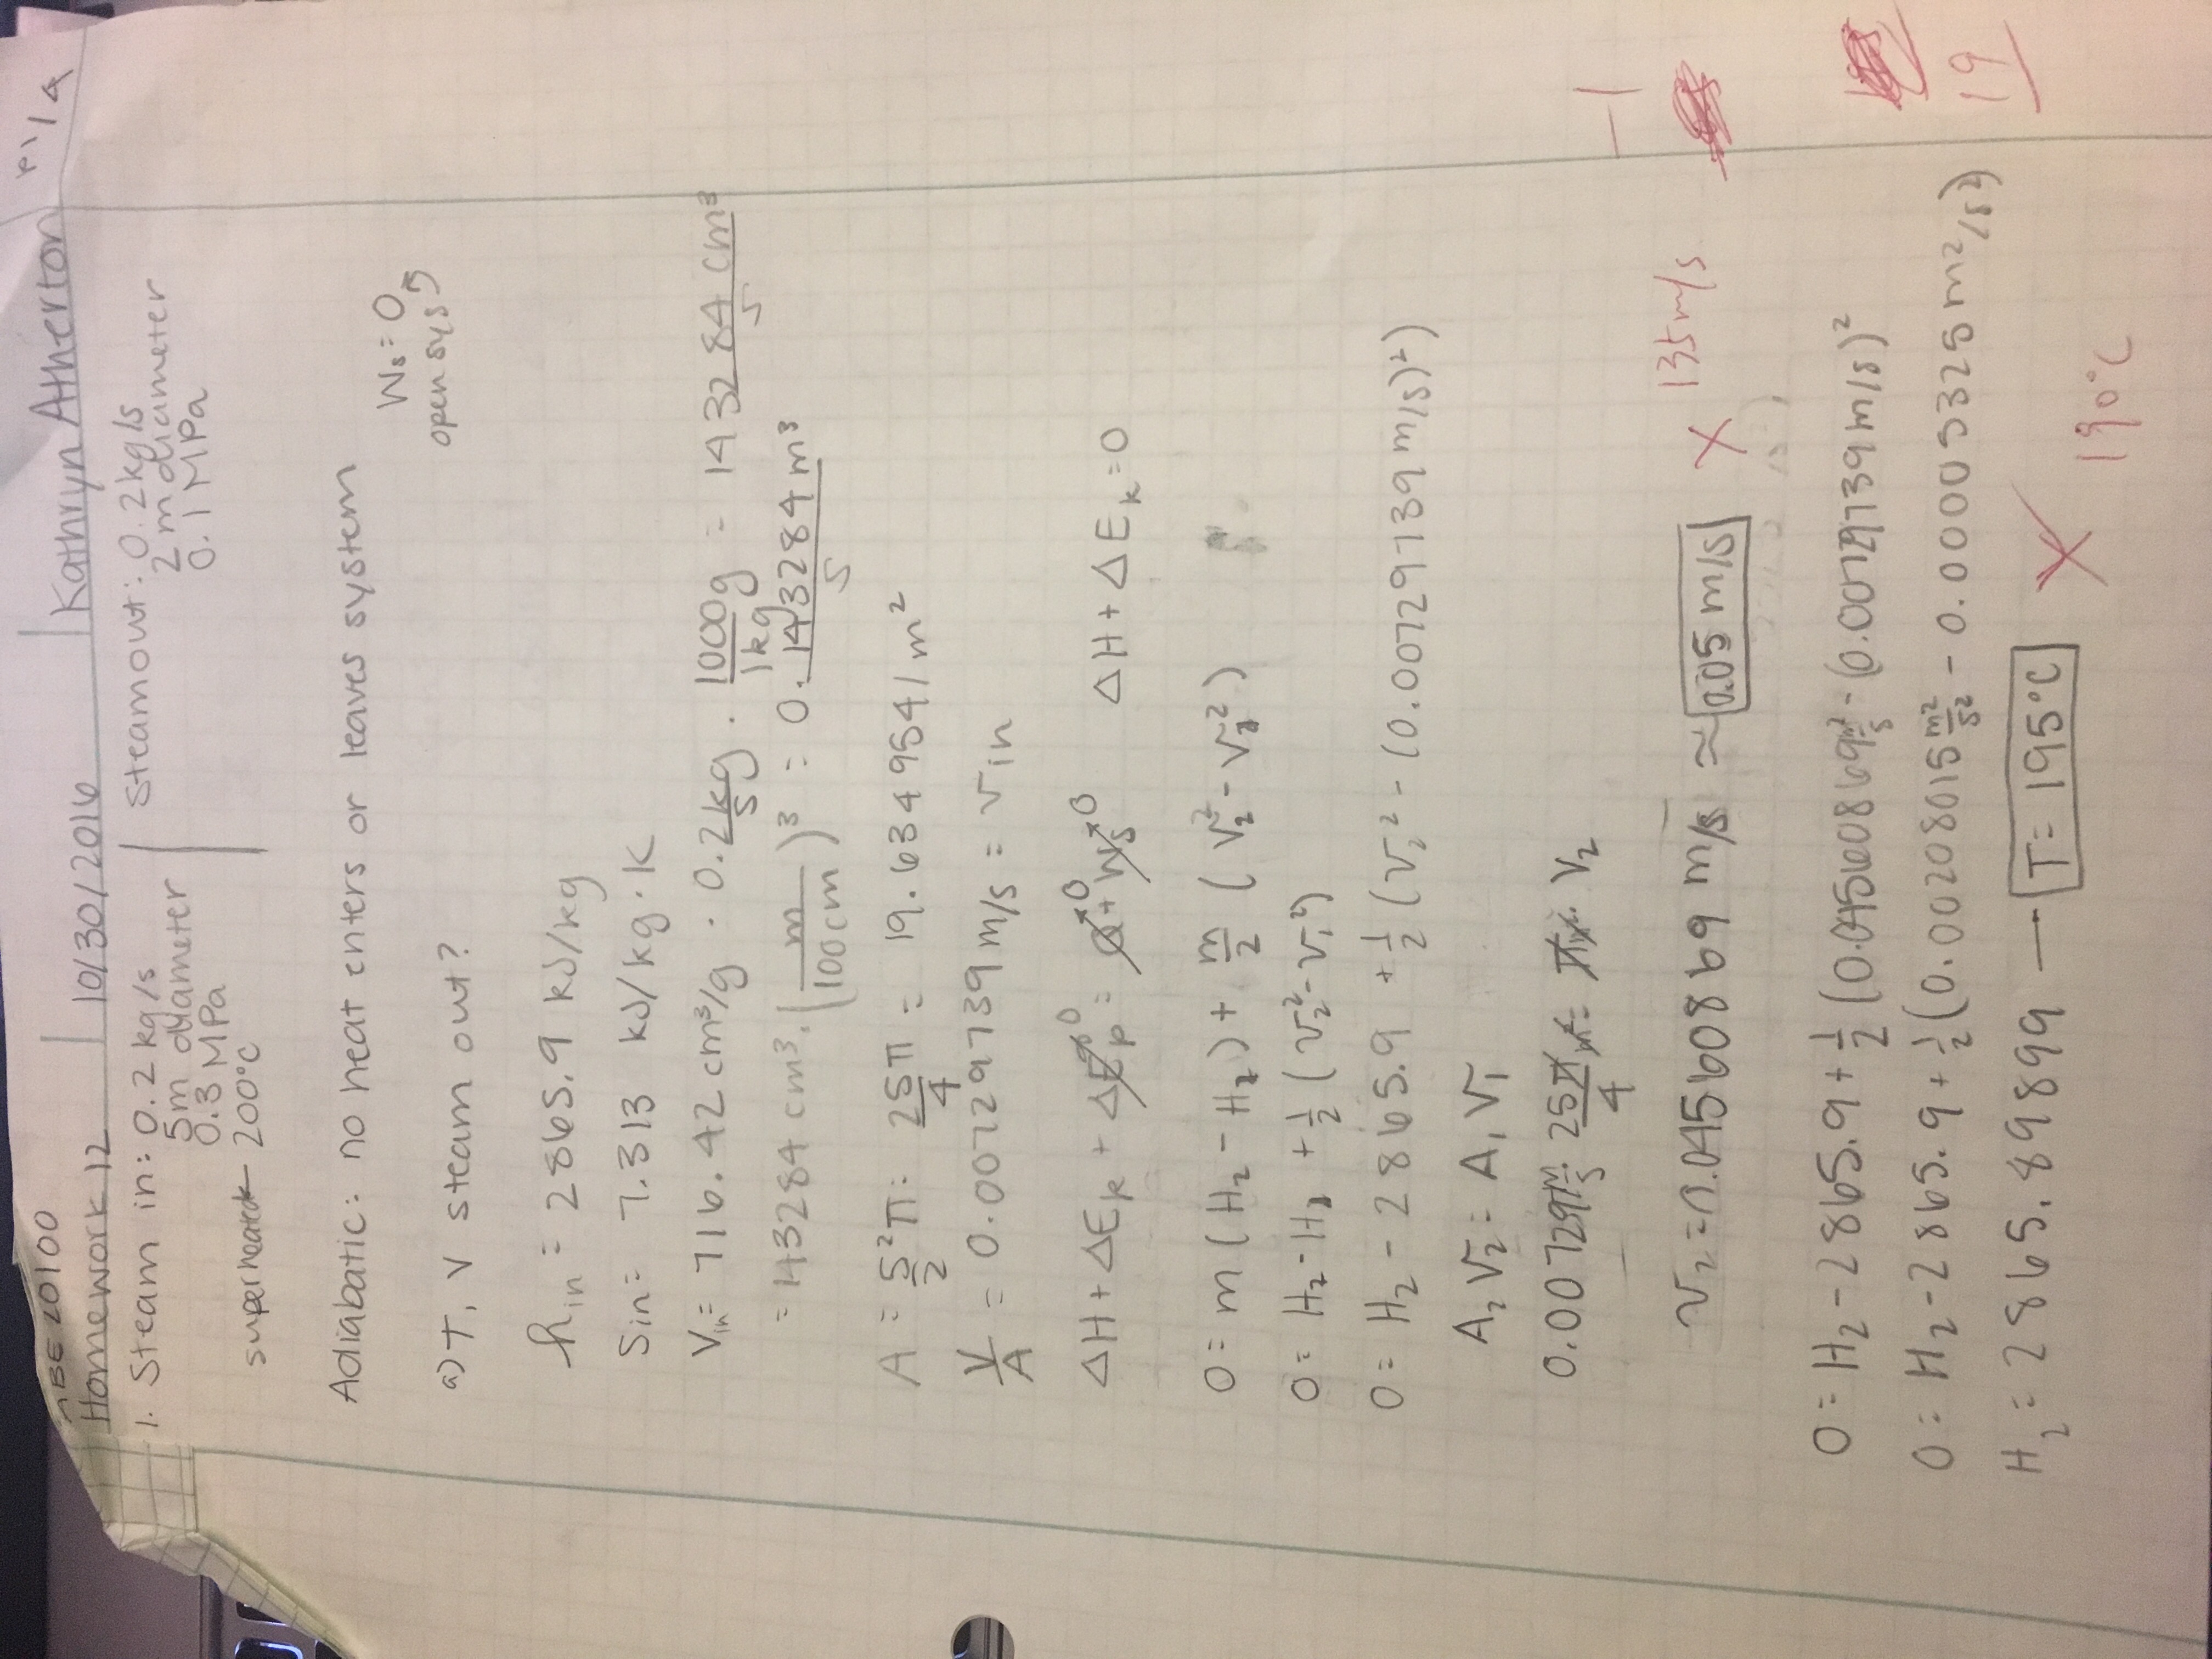 ABE 20100
Homework 12 | 10/30/2016 | Kathryn Atherton P1/4
1. Steam in: 0.2 kg/s
5m diameter
0.3 MPa
superheated ← 200°C
Steam out: 0.2kg/s
2 m diameter
0.1 MPa
Adiabatic: no heat enters or leaves system
Ws = 0
open sys
a) T, V steam out?
h_in = 2865.9 kJ/kg
S_in = 7.313 kJ/kg·K
V_in = 716.42 cm³/g · 0.2 kg/s · 1000g/1kg = 143284 cm³/s
= 143284 cm³ · (m/100cm)³ = 0.143284 m³/s
A = 5²/2 π = 25π/4 = 19.6349541 m²
V/A = 0.00729739 m/s = v_in
ΔH + ΔE_k + ΔE_p→0 = Q→0 + W_s→0 ΔH + ΔE_k = 0
0 = m (H₂ - H₁) + m/2 (v₂² - v₁²)
0 = H₂ - H₁ + 1/2 (v₂² - v₁²)
0 = H₂ - 2865.9 + 1/2 (v₂² - (0.00729739 m/s)²)
A₂ v₂ = A₁ v₁
0.00729 m/s 25π/4 m² = πm² · v₂
v₂ = 0.04560869 m/s ≈ 0.05 m/s X 135 m/s
-1
0 = H₂ - 2865.9 + 1/2 (0.04560869 m²/s - (0.00729739 m/s)²
0 = H₂ - 2865.9 + 1/2 (0.00208015 m²/s² - 0.00005325 m²/s²)
19
H₂ = 2865.89899 → T = 195°C X
190°C